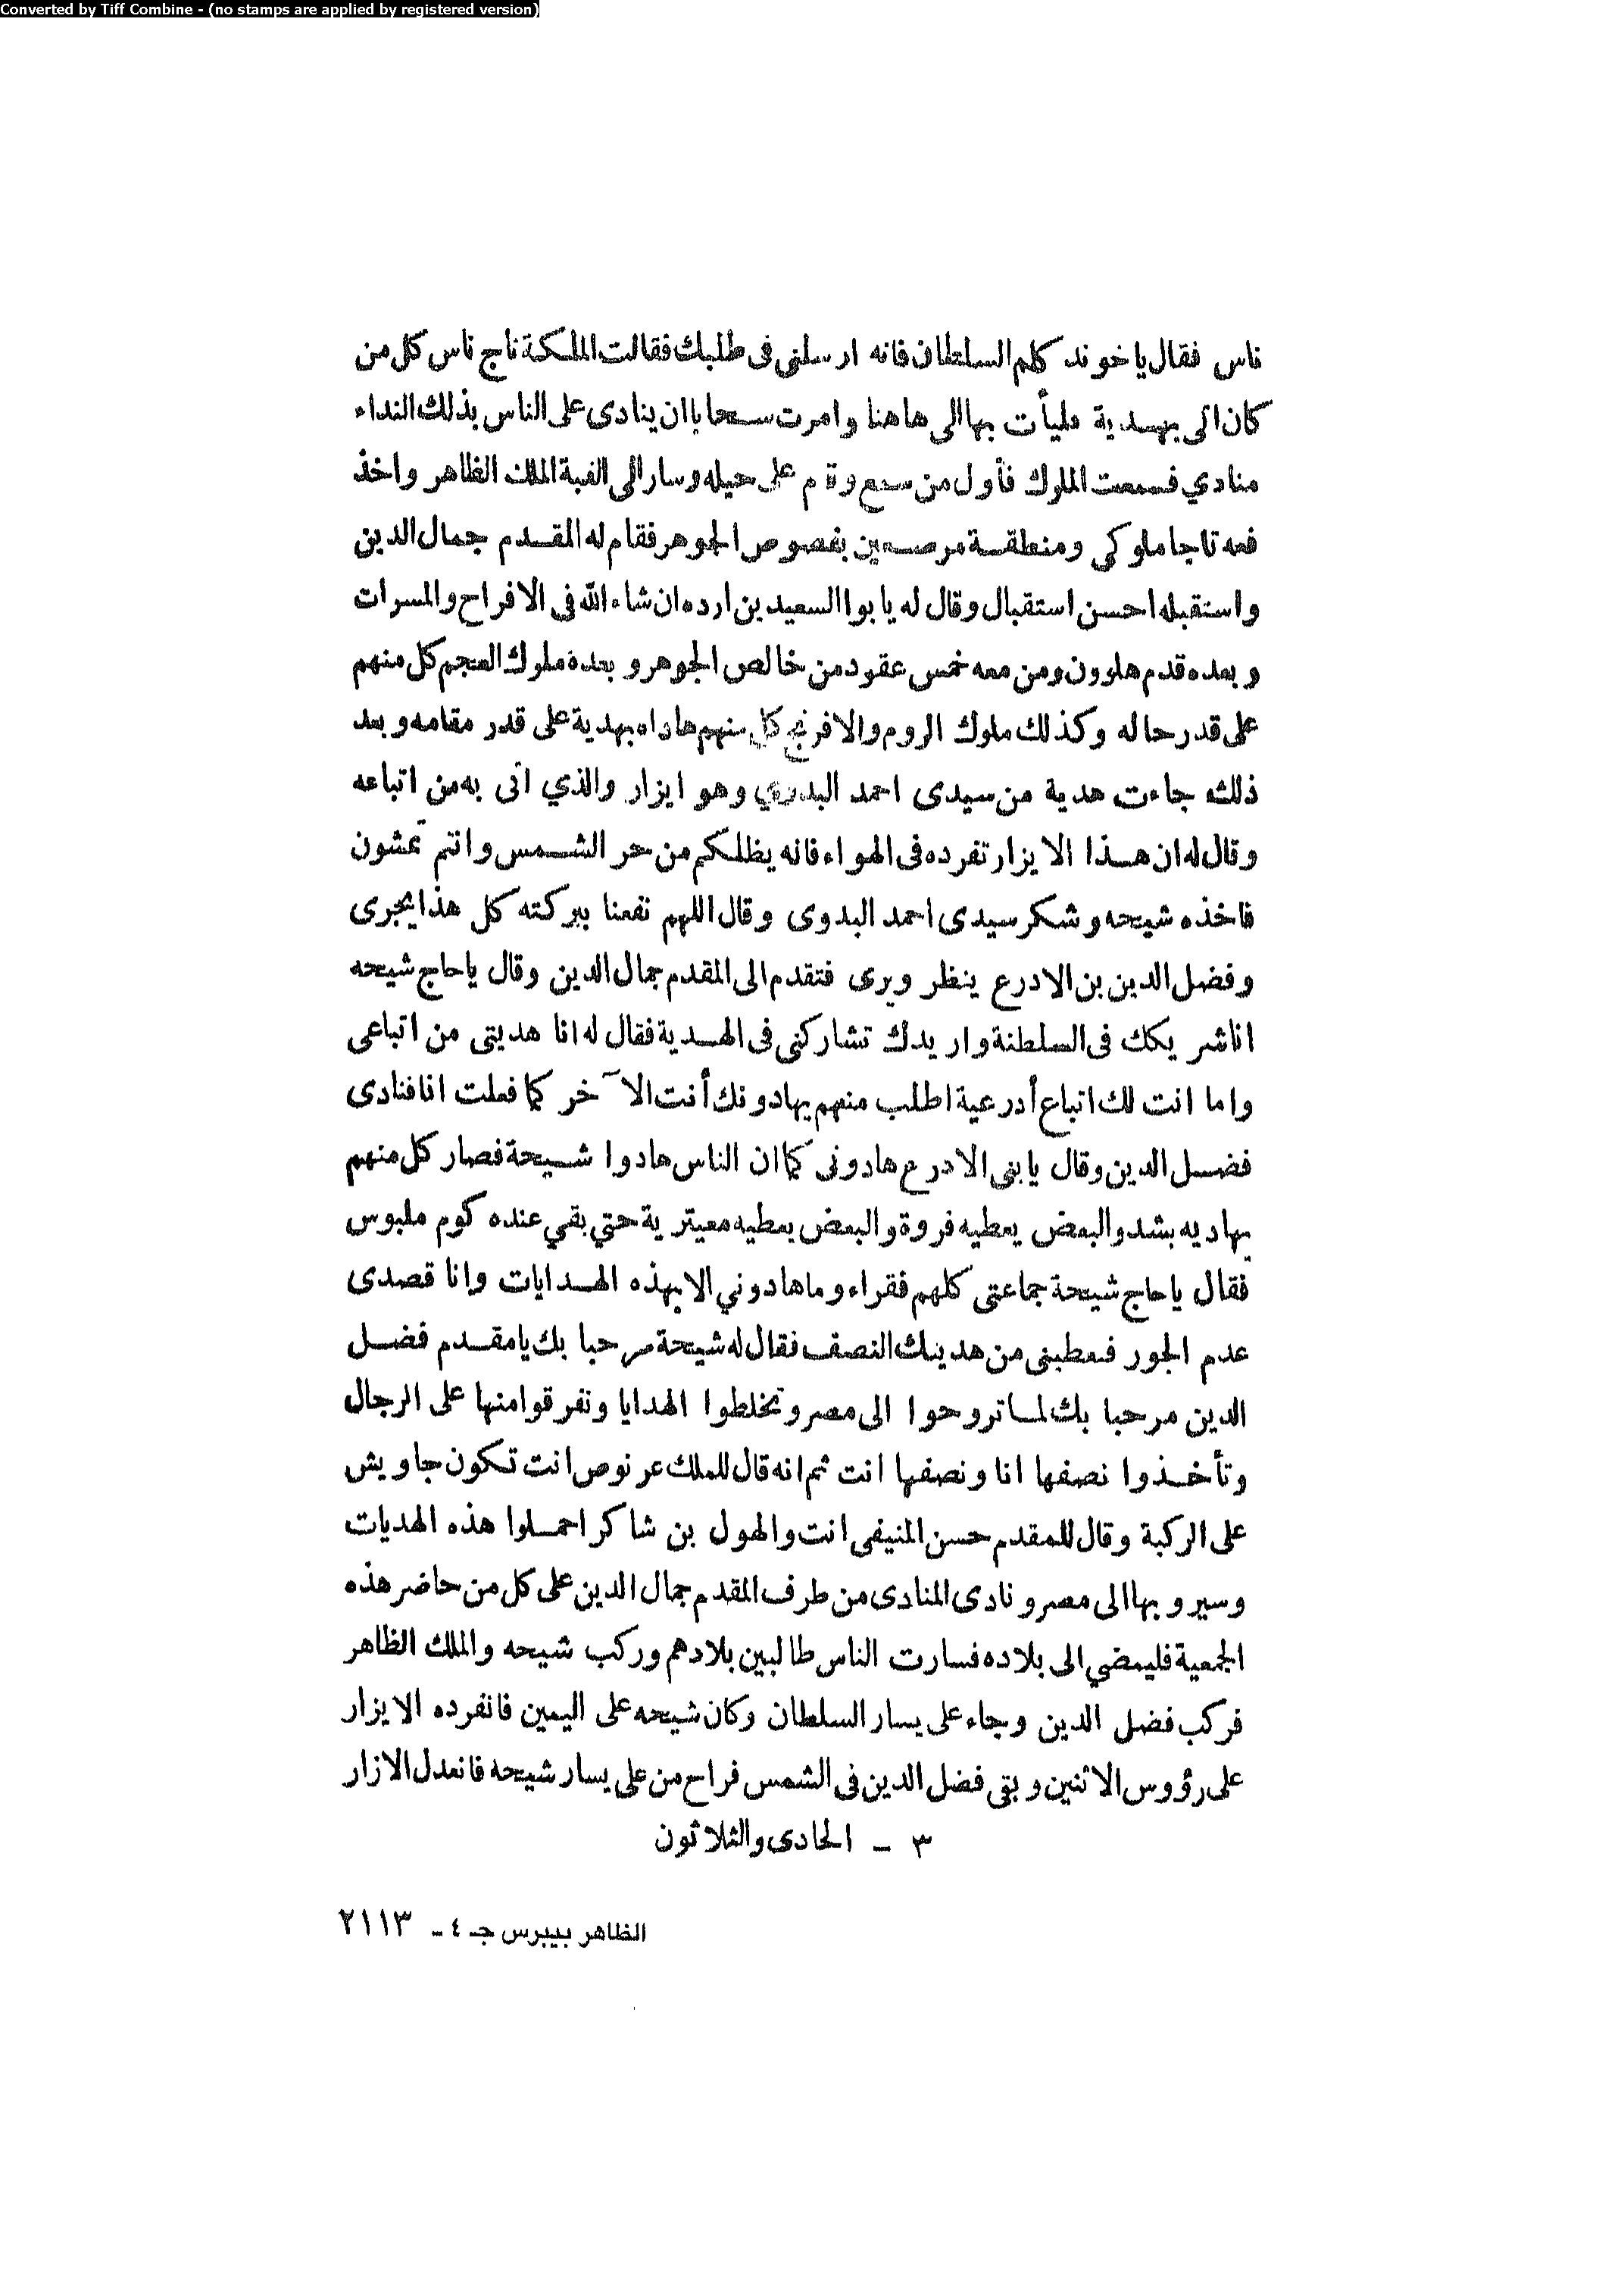 Converted by Tiff Combine - (no stamps are applied by registered version)
ناس فقال ياخوند كلم السلطان فانه ارسلنى فى طلبك فقالت الملكة تاج ناس كل من
كان اتى بهدية فليأت بها الى هاهنا وامرت سحابا ان ينادى على الناس بذلك النداء
منادي فسمعت الملوك فأول من سمع وقام على حيله وسار الى القبة الملك الظاهر واخذ
معه تاجا ملوكى ومنطقة مرصعين بفصوص الجوهر فقام له المقدم جمال الدين
واستقبله احسن استقبال وقال له يا بوا السعيد بن ارده ان شاء الله فى الافراح والمسرات
وبعده قدم هلوون ومن معه خمس عقود من خالص الجوهر و بعده ملوك العجم كل منهم
على قدر حاله وكذلك ملوك الروم والافرنج كل منهم هاداه بهدية على قدر مقامه وبعد
ذلك جاءت هدية من سيدى احمد البدوي وهو ايزار والذي اتى به من اتباعه
وقال له ان هذا الايزار تفرده فى الهواء فانه يظلكم من حر الشمس وانتم تمشون
فاخذه شيحه وشكر سيدى احمد البدوى وقال اللهم نفعنا ببركته كل هذا يجرى
وفضل الدين بن الادرع ينظر ويرى فتقدم الى المقدم جمال الدين وقال ياحاج شيحه
انا شريكك فى السلطنة واريدك تشاركنى فى الهدية فقال له انا هديتى من اتباعى
واما انت لك اتباع أدرعية اطلب منهم يهادونك أنت الآخر كما فعلت انا فنادى
فضل الدين وقال يا بنى الادرع هادونى كما ان الناس هادوا شيحة فصار كل منهم
يهاديه بشد والبعض يعطيه فروة والبعض يعطيه معيترية حتي بقي عنده كوم ملبوس
فقال ياحاج شيحة جماعتى كلهم فقراء وما هادوني الا بهذه الهدايات وانا قصدى
عدم الجور فمعطينى من هديتك النصف فقال له شيحة مرحبا بك يامقدم فضل
الدين مرحبا بك لما تروحوا الى مصر وتخلطوا الهدايا وتفرقوا منها على الرجال
وتأخذوا نصفها انا ونصفها انت ثم انه قال للملك عرنوص انت تكون جاويش
على الركبة وقال للمقدم حسن المنيفى انت والهول بن شاكر احملوا هذه الهديات
وسيرو بها الى مصر ونادى المنادى من طرف المقدم جمال الدين على كل من حاضر هذه
الجمعية فليمضي الى بلاده فسارت الناس طالبين بلادهم وركب شيحه والملك الظاهر
فركب فضل الدين وجاء على يسار السلطان وكان شيحه على اليمين فانفرده الايزار
على رؤوس الاثنين وبقى فضل الدين فى الشمس فراح من على يسار شيحه فانعدل الازار
٣ - الحادى والثلاثون
الظاهر بيبرس جـ ٤ - ٢١١٣